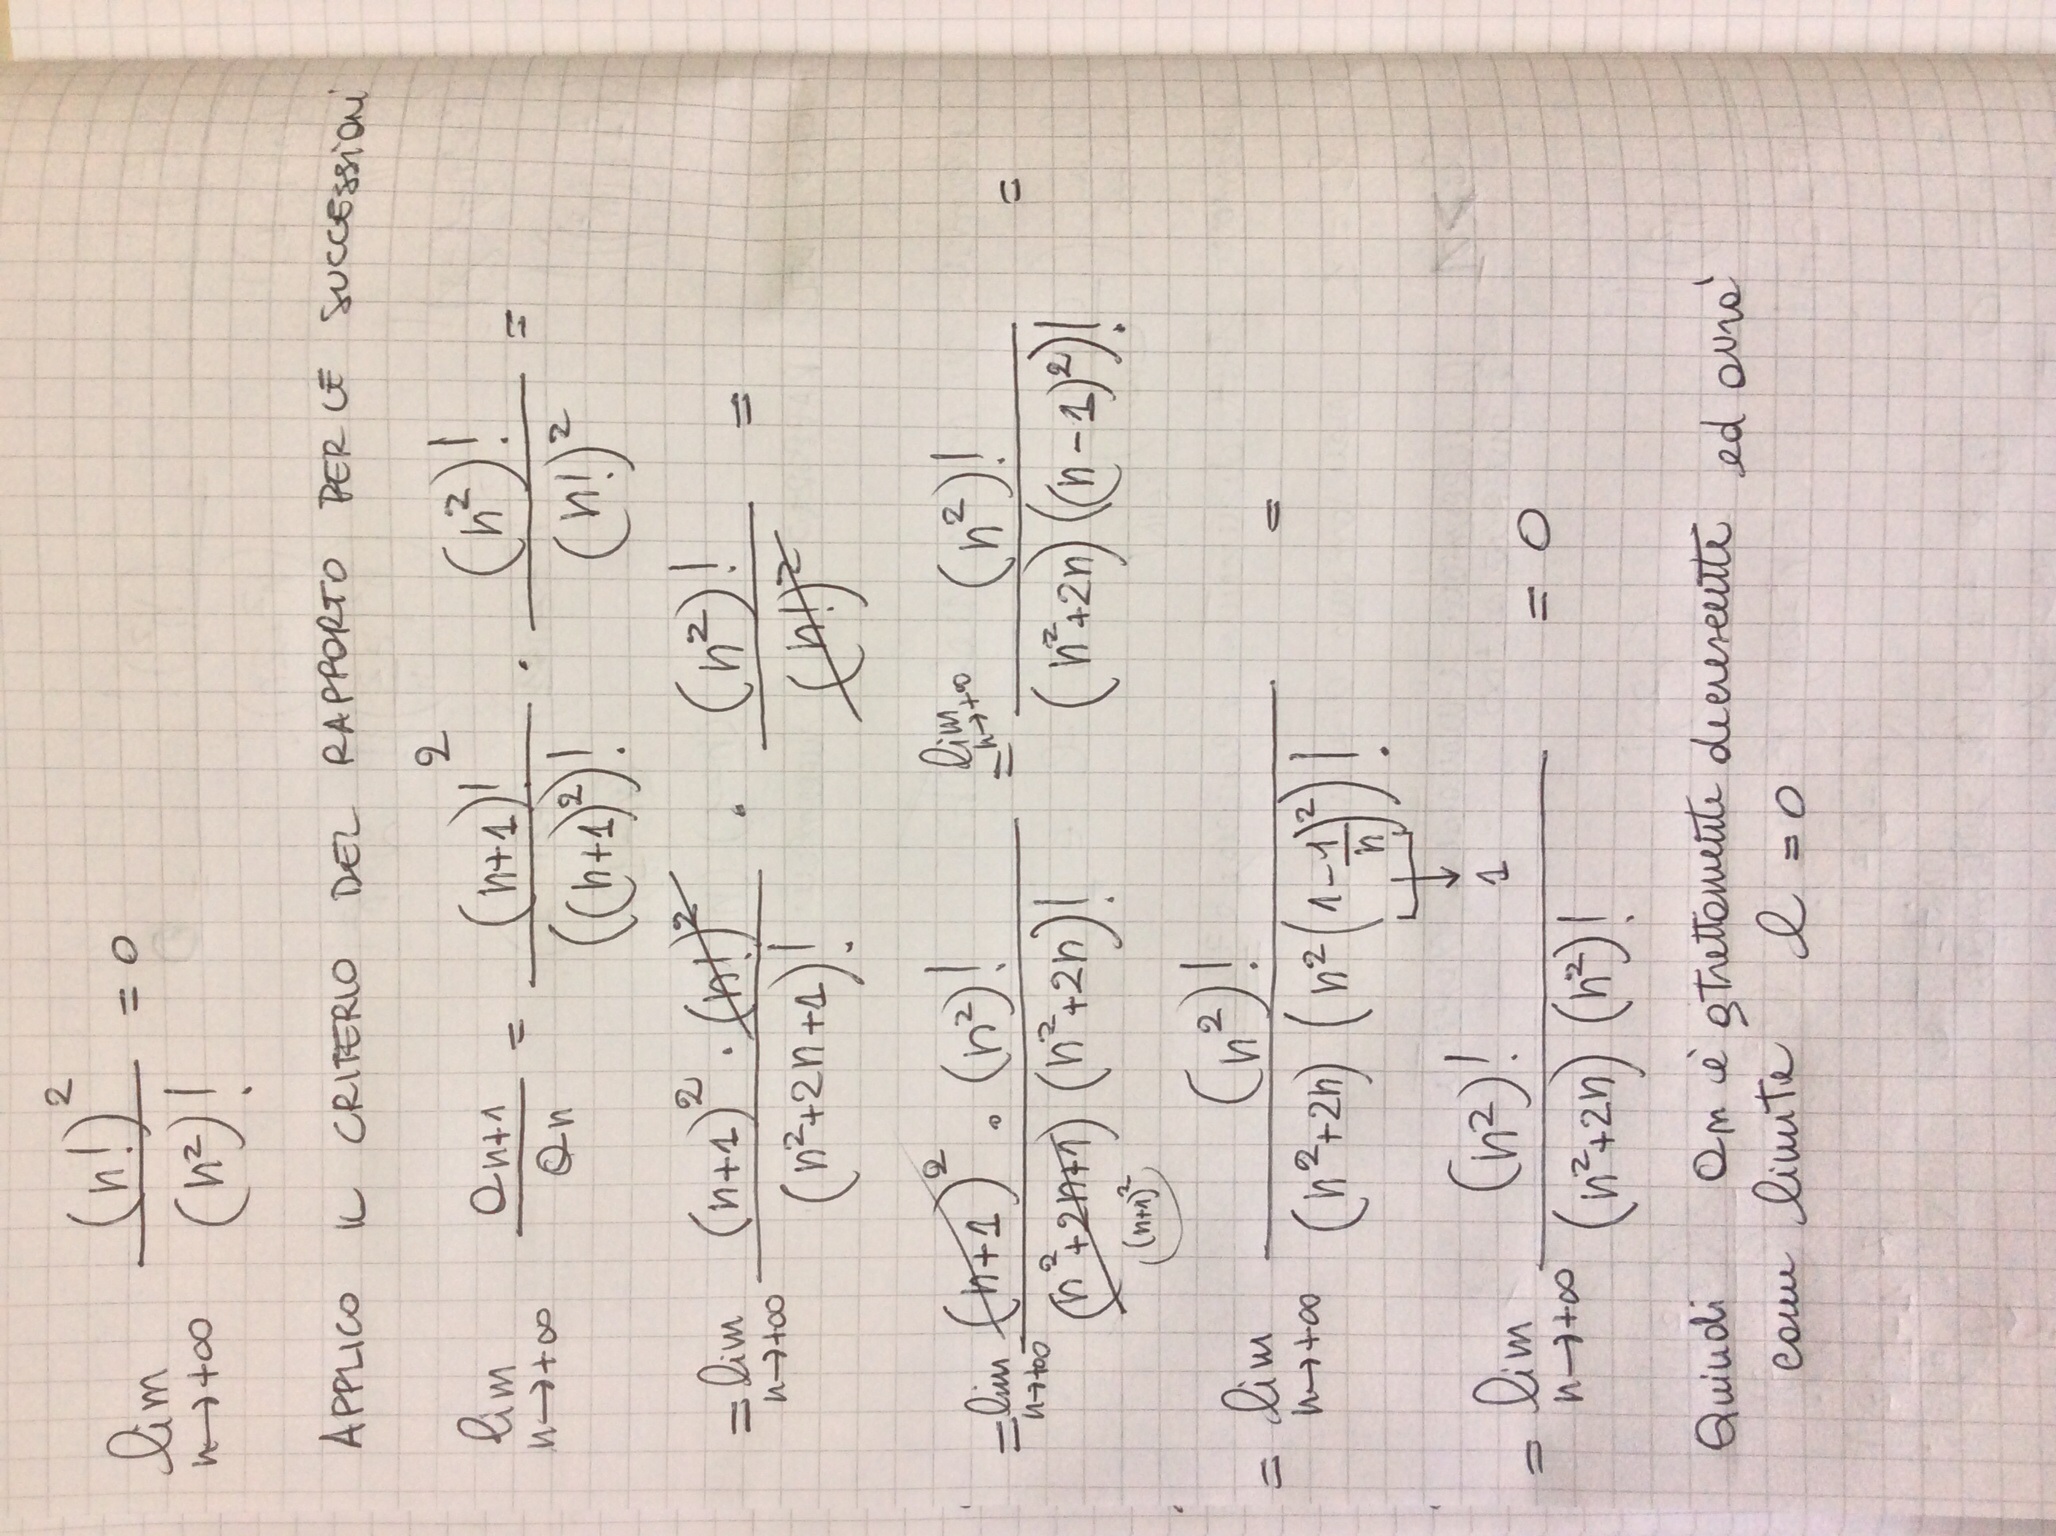 lim n→+∞ (n!)² / (n²)! = 0
APPLICO IL CRITERIO DEL RAPPORTO PER LE SUCCESSIONI
lim n→+∞ an+1 / an = (n+1)!² / ((n+1)²)! · (n²)! / (n!)² =
= lim n→+∞ (n+1)² · (n!)² / (n²+2n+1)! · (n²)! / (n!)² =
= lim n→+∞ (n+1)² · (n²)! / (n²+2n+1) (n²+2n)! = lim n→+∞ (n²)! / (n²+2n) ((n-1)²)! =
(n+1)²
= lim n→+∞ (n²)! / (n²+2n) (n² (1-1/n)²))! =
1
= lim n→+∞ (n²)! / (n²+2n) (n²)! = 0
Quindi an è strettamente decrescente ed avrà
come limite l = 0